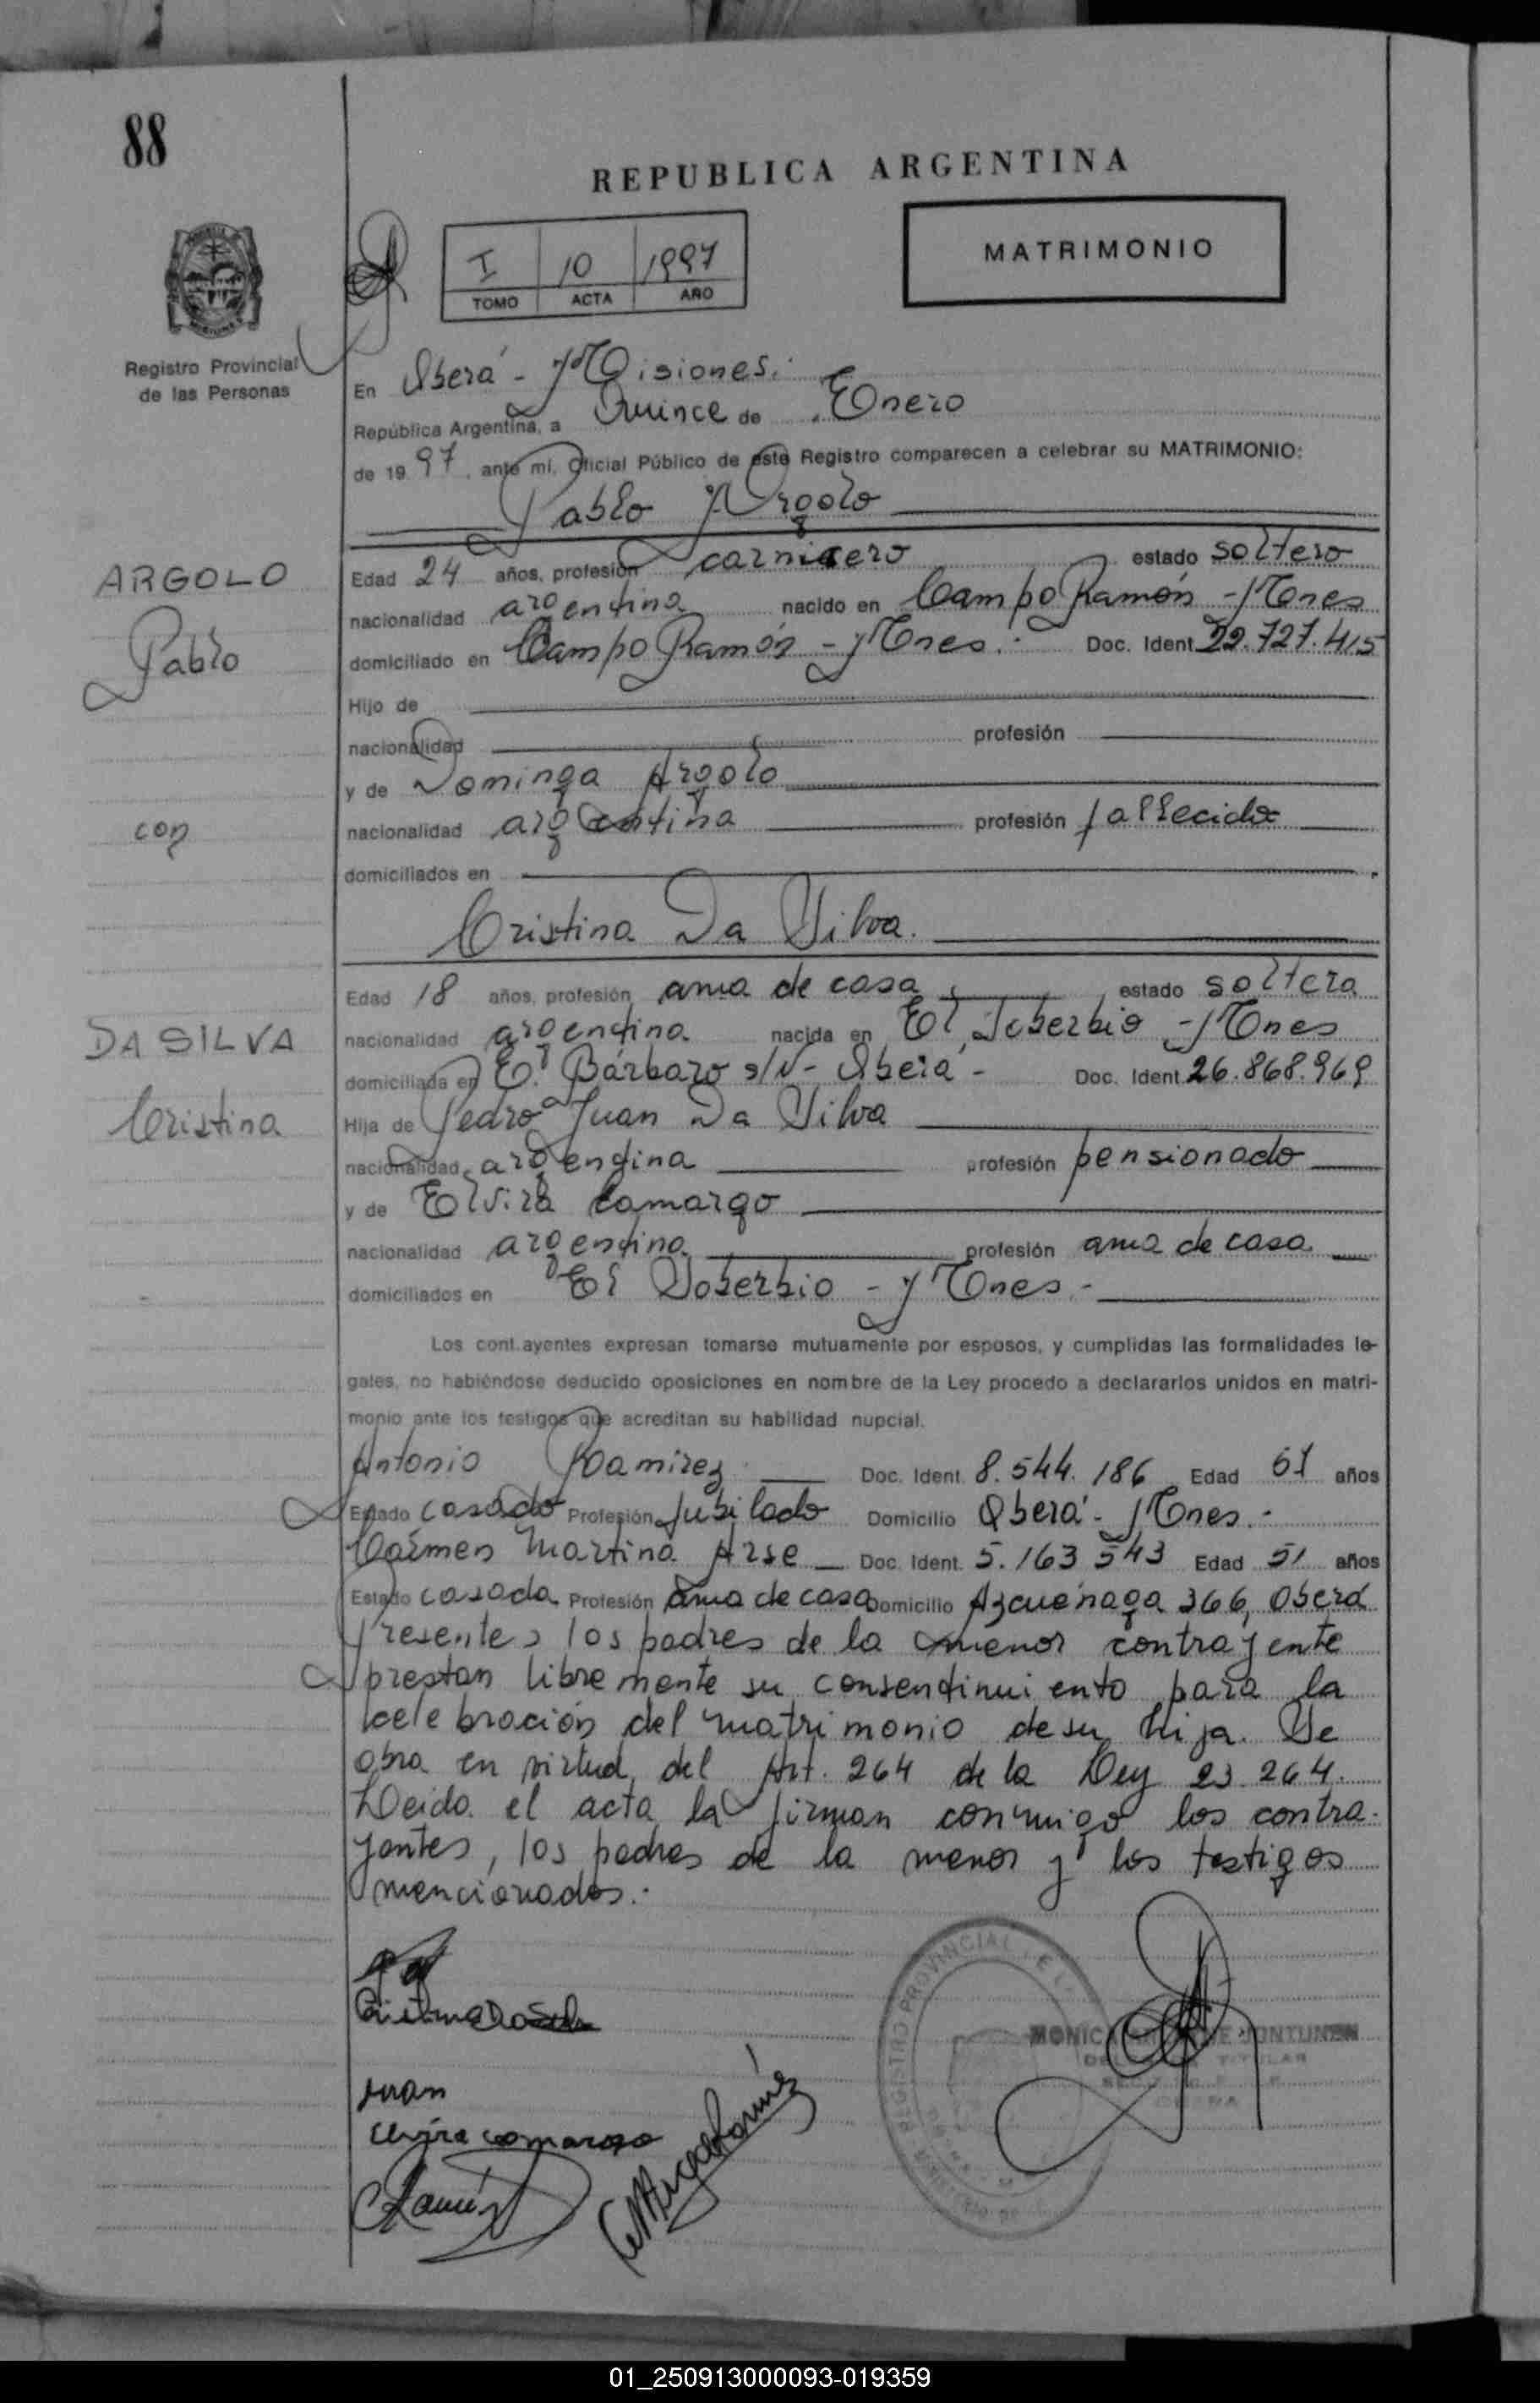 88
REPUBLICA ARGENTINA
I 10 1997
TOMO ACTA AÑO
MATRIMONIO
Registro Provincial
de las Personas
En Oberá - Misiones.
República Argentina, a Quince de Enero
de 19 97, ante mí, Oficial Público de este Registro comparecen a celebrar su MATRIMONIO:
Pablo Argolo
ARGOLO
Pablo
con
DA SILVA
Cristina
Edad 24 años, profesión carnicero estado soltero
nacionalidad argentina nacido en Campo Ramón - Mnes
domiciliado en Campo Ramón - Mnes. Doc. Ident. 22.727.415
Hijo de
nacionalidad profesión
y de Dominga Argolo
nacionalidad argentina profesión fallecida
domiciliados en
Cristina Da Silva.
Edad 18 años, profesión ama de casa estado soltera
nacionalidad argentina nacida en El Soberbio - Mnes
domiciliada en Bárbaro s/N - Oberá - Doc. Ident. 26.868.969
Hija de Pedro Juan Da Silva
nacionalidad argentina profesión pensionado
y de Elvira Camargo
nacionalidad argentina profesión ama de casa
domiciliados en El Soberbio - Mnes -
Los contrayentes expresan tomarse mutuamente por esposos, y cumplidas las formalidades le-
gales, no habiéndose deducido oposiciones en nombre de la Ley procedo a declararlos unidos en matri-
monio ante los testigos que acreditan su habilidad nupcial.
Antonio Ramirez Doc. Ident. 8.544.186 Edad 61 años
Estado casado Profesión Jubilado Domicilio Oberá - Mnes.-
Carmen Martina Arse Doc. Ident. 5.163 543 Edad 51 años
Estado casada Profesión ama de casa Domicilio Azcuénaga 366, Oberá
Presentes los padres de la menor contrayente
prestan libremente su consentimiento para la
celebración del matrimonio de su hija. Se
obra en virtud del Art. 264 de la Ley 23.264.
Leida el acta la firman conmigo los contra-
yentes, los padres de la menor y los testigos
mencionados.-
Cristina Da Silva
Juan
elvira camargo
REGISTRO PROVINCIAL DE
MONICA JONTUNEN
TITULAR
OBERA
01_250913000093-019359